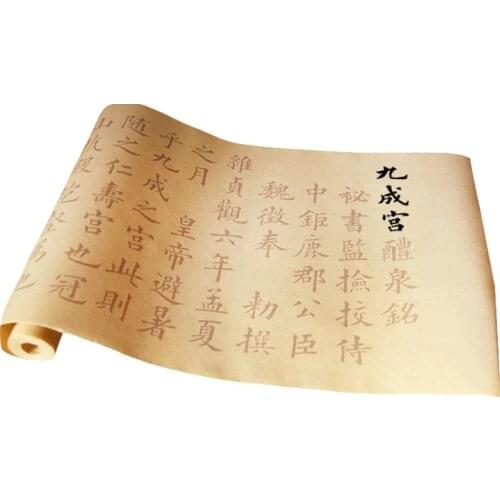 九成宫醴泉銘
祕書監撿挍侍
中鉅鹿郡公臣
魏徵奉 勑撰
維貞觀六年孟夏
之月 皇帝避暑
乎九成之宫此則
随之仁壽宫也冠
山抗殿絶壑為